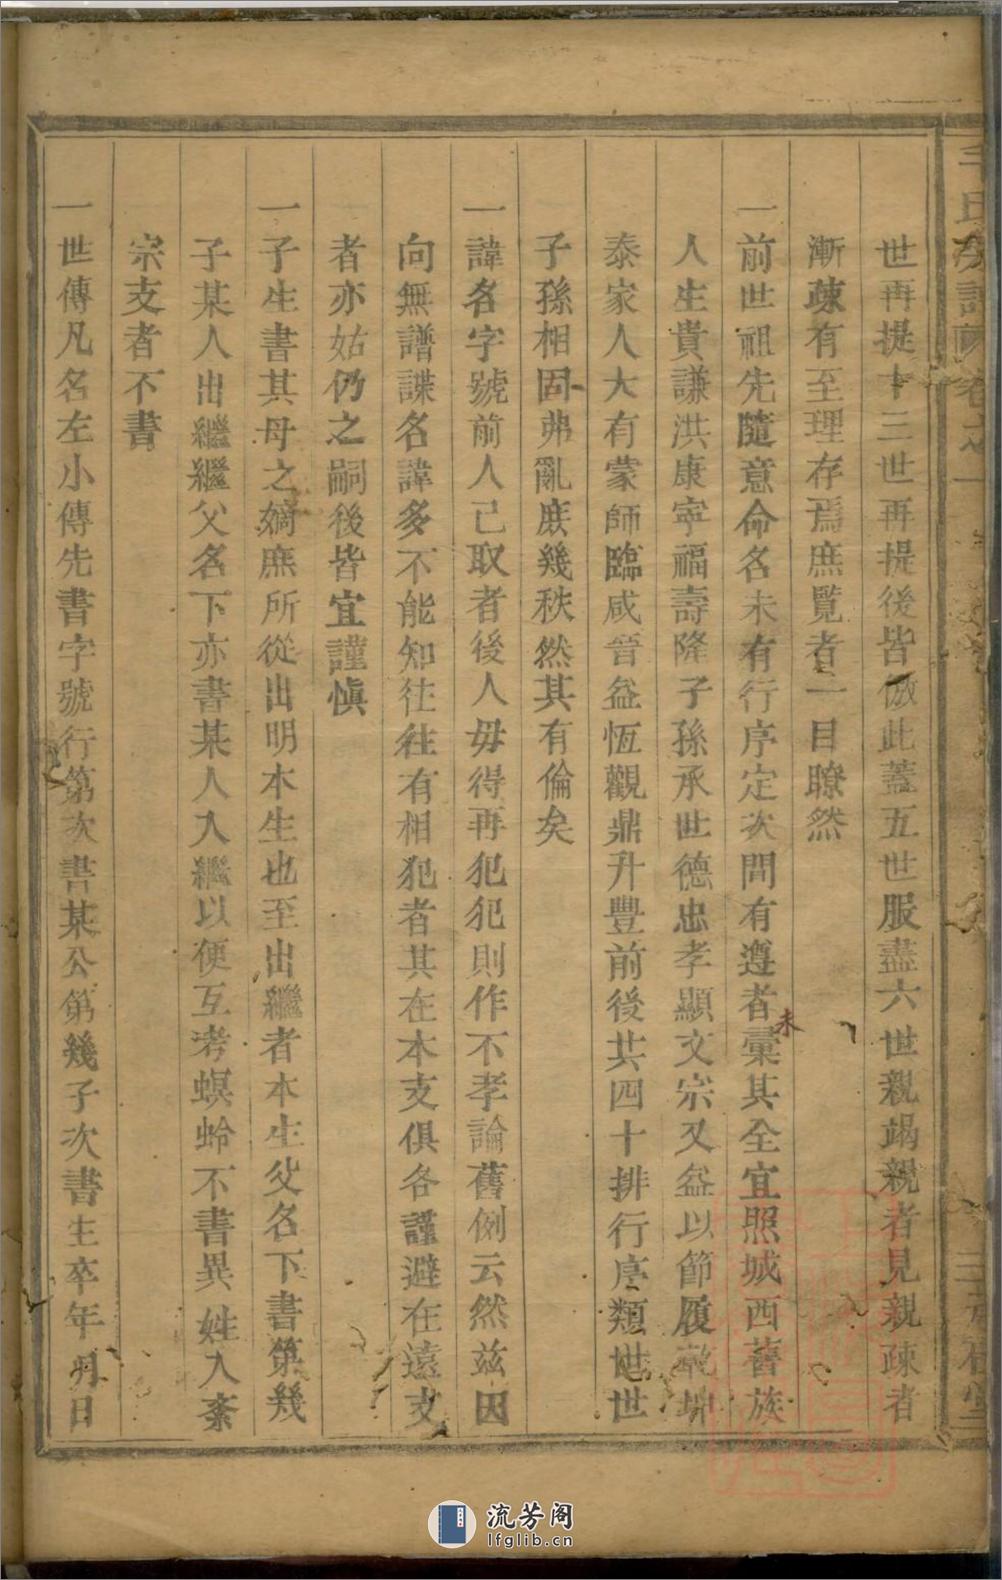 世再提十三世再提後皆倣此蓋五世服盡六世親竭親者見親疎者
漸疎有至理存焉庶覽者一目瞭然
一前世祖先隨意命名未有行序定次間有遵者彙其全宜照城西舊族
未
人生貴謙洪康寧福壽隆子孫承世德忠孝顯文宗又益以節履乾坤
泰家人大有蒙師臨咸晉益恆觀鼎升豐前後共四十排行序類世世
子孫相固弗亂庶幾秩然其有倫矣
一諱名字號前人已取者後人毋得再犯犯則作不孝論舊例云然兹因
向無譜諜名諱多不能知往往有相犯者其在本支俱各謹避在遠支
者亦姑仍之嗣後皆宜謹慎
一子生書其母之嫡庶所從出明本生也至出繼者本生父名下書第幾
子某人出繼繼父名下亦書某人入繼以便互考螟蛉不書異姓入紊
宗支者不書
一世傳凡名左小傳先書字號行第次書某公第幾子次書生卒年月日
流芳阁
lfglib.cn